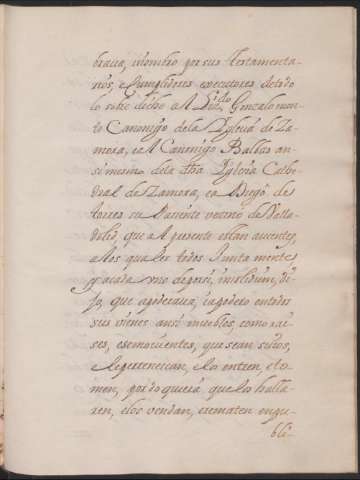 braua, nombro por sus testamenta-
rios, cumplidores executores de todo
lo sobre dicho a l Lizdo Gonzalo mon-
to Canonigo de la Yglesia de Za-
mora, ea l Canonigo Ballco an-
si mesmo de la dha Yglesia Cathe-
dral de Zamora, ea Diego de
torres su Pariente vecino de Valla-
dolid, que al presente estan ausentes,
alos quales todos Junta mente
y acada uno de por si, insolidum, di-
jo, que apoderaua, iapodero entodos
sus vienes ansi muebles, como rai-
ses, e semouientes, que sean suios,
e le pertenezcan, e los entren, eto-
men, por do quiera que los halla-
ren, e los vendan, e rematen en pu-
bli-